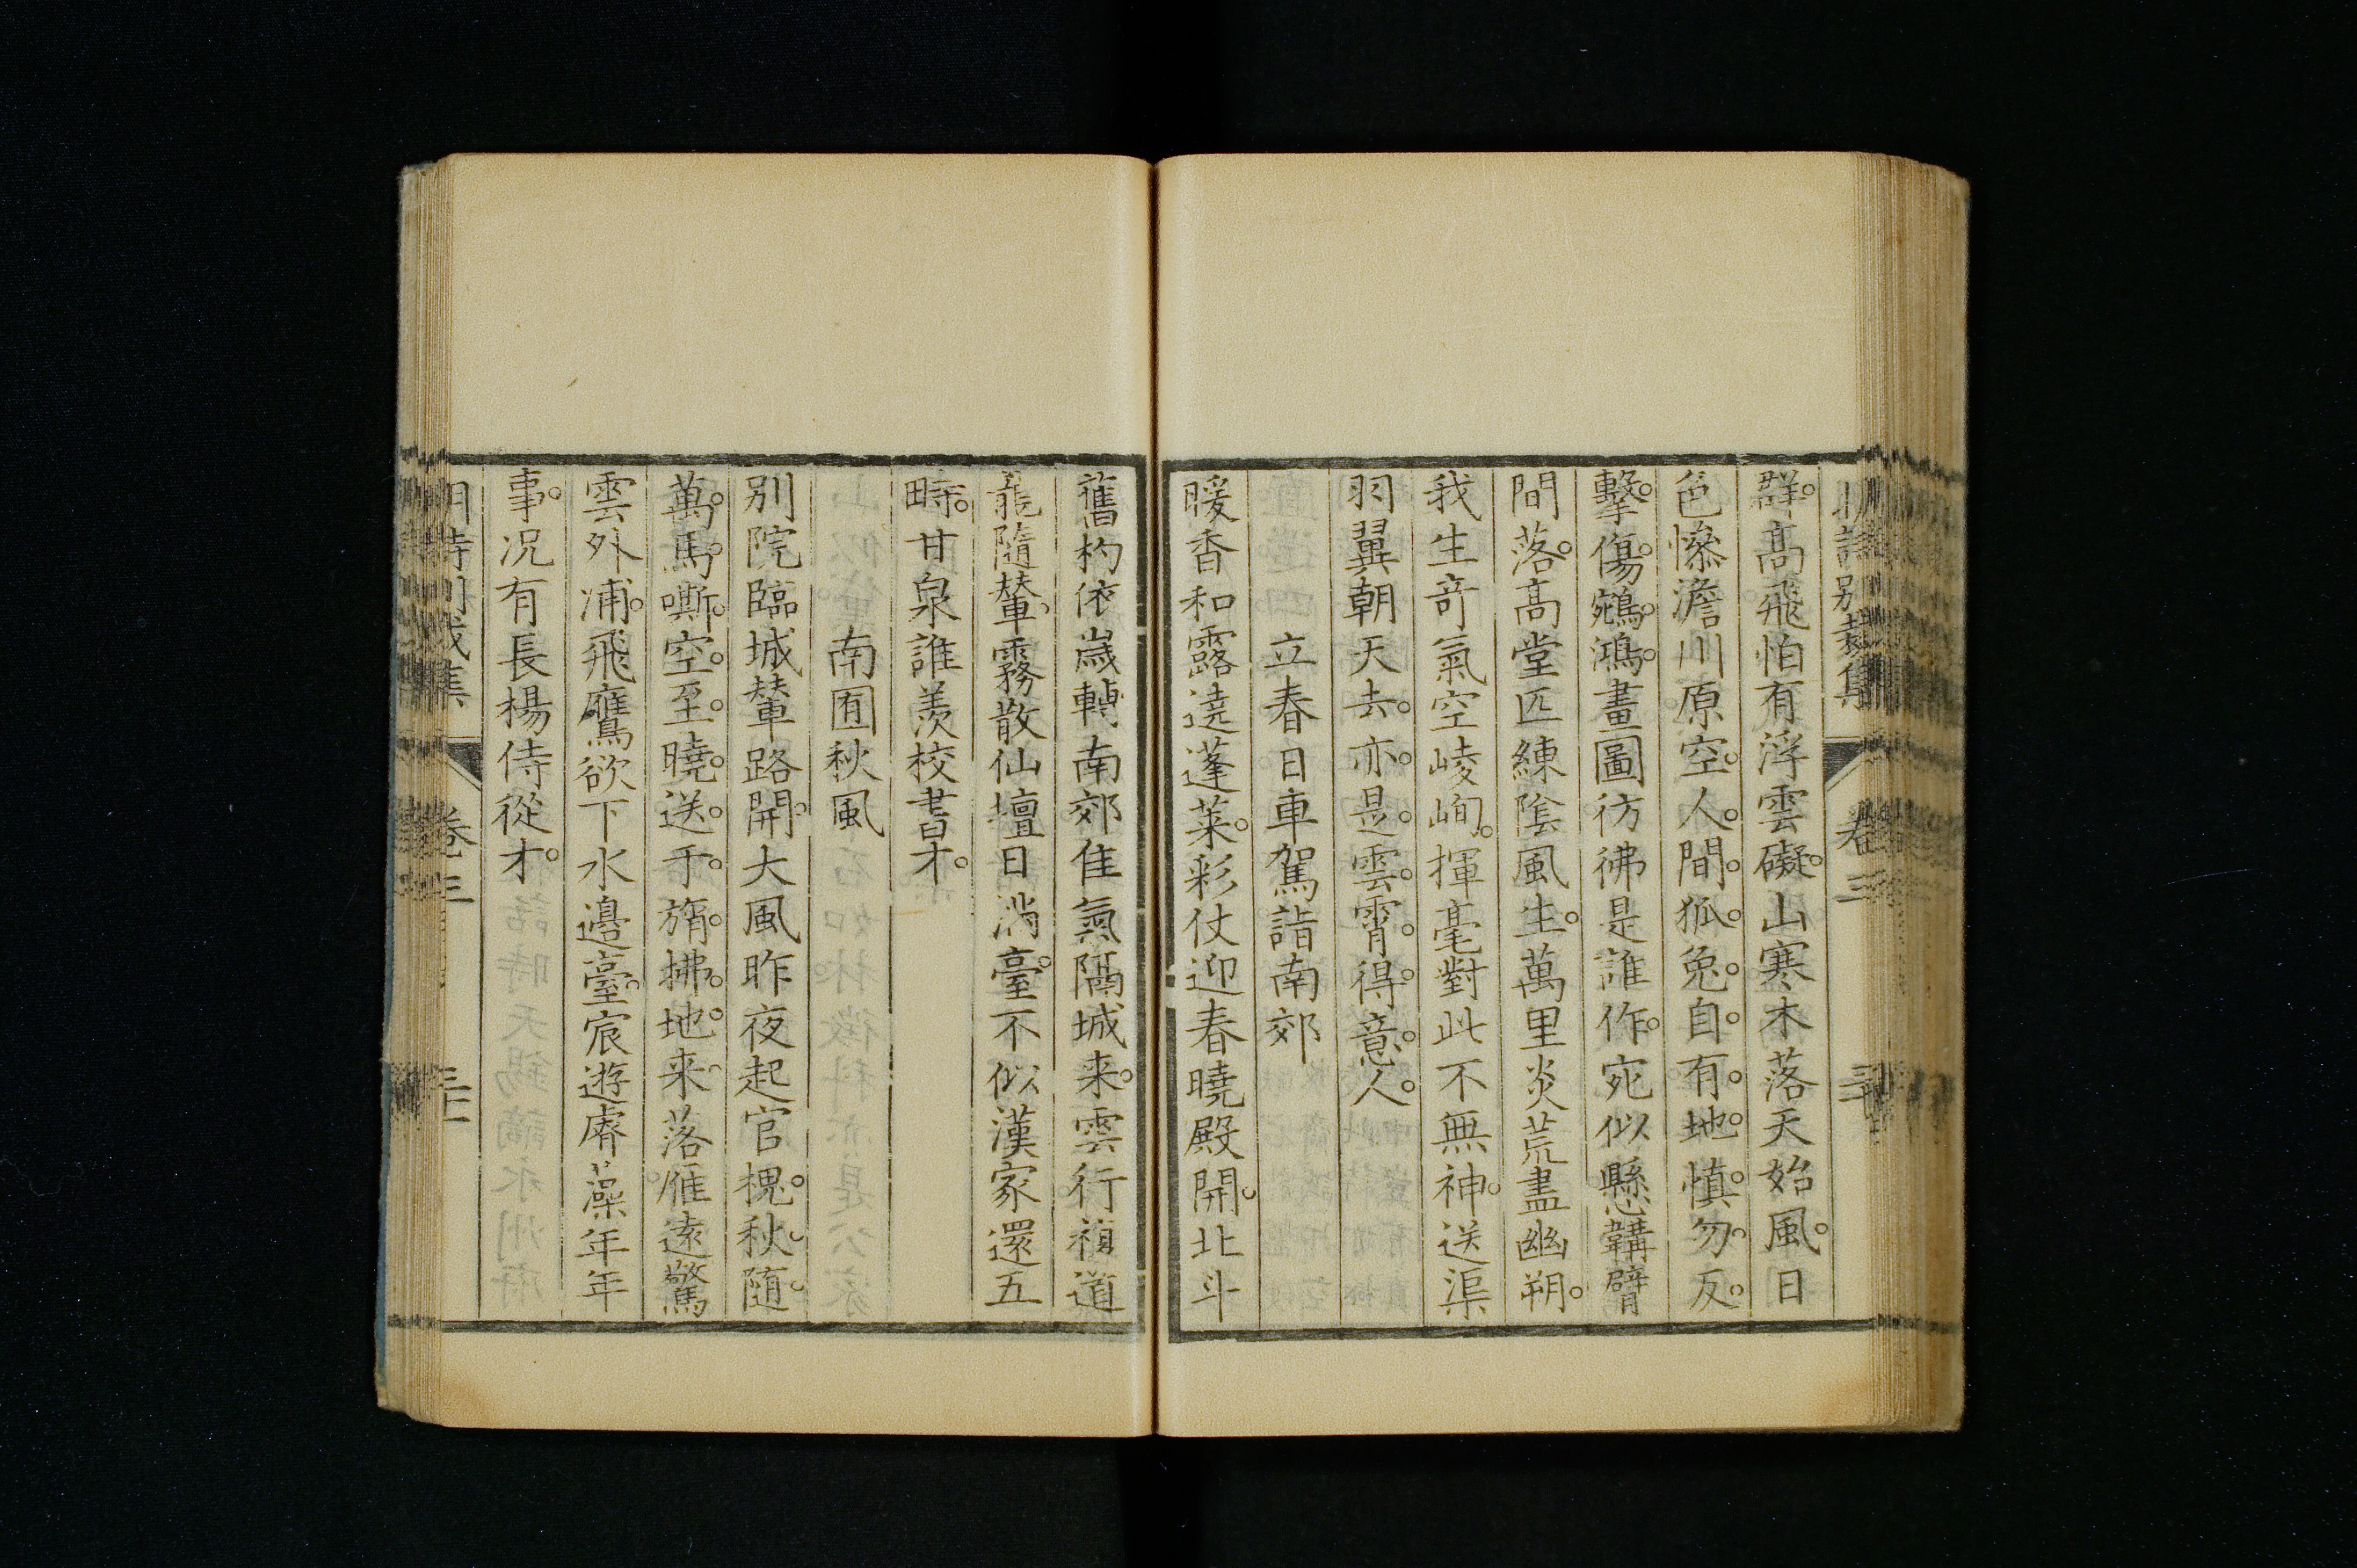 明詩別裁集 卷三 三十
群高飛怕有浮雲礙山寒木落天始風日
色慘澹川原空人間狐兔自有地愼勿反
擊傷鵷鴻畫圖彷彿是誰作宛似懸韝臂
間落高堂匹練陰風生萬里炎荒盡幽朔
我生奇氣空崚峋揮毫對此不無神送渠
羽翼朝天去亦是雲霄得意人
立春日車駕詣南郊
暖香和露遶蓬萊彩仗迎春曉殿開北斗
舊杓依歲轉南郊佳氣隔城来雲行複道
龍隨輦霧散仙壇日滿臺不似漢家還五
畤甘泉誰羨校書才
南囿秋風
別院臨城輦路開大風昨夜起官槐秋隨
萬馬嘶空至曉送千旓拂地来落雁遠驚
雲外浦飛鷹欲下水邊臺宸遊睿藻年年
事况有長楊侍從才
明詩別裁集 卷三 三十一